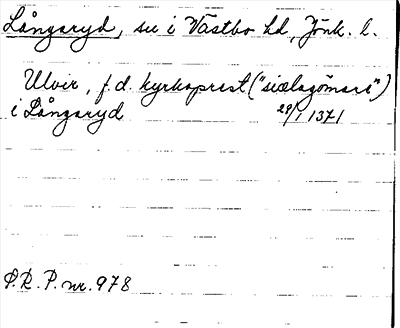 Långaryd, sn i Västbo hd, Jönk. l.
Ulvir, f.d. kyrkoprest ("siælagömare")
i Långaryd 29/1 1371
S.R.P. nr. 978